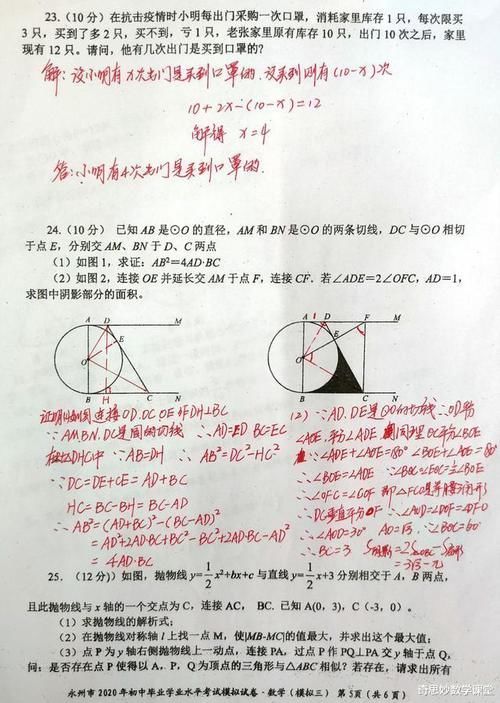 23.（10 分）在抗击疫情时小明每出门采购一次口罩，消耗家里库存 1 只，每次限买
3 只，买到了多 2 只，买不到，亏 1 只，老张家里原有库存 10 只，出门 10 次之后，家里
现有 12 只。请问，他有几次出门是买到口罩的？
解：设小明有 x 次出门是买到口罩的. 设买到则有 (10-x) 次
10+2x-(10-x)=12
解得 x=4
答：小明有4次出门是买到口罩的.
24.（10 分） 已知 AB 是⊙O 的直径，AM 和 BN 是⊙O 的两条切线，DC 与⊙O 相切
于点 E，分别交 AM、BN 于 D、C 两点
（1）如图 1，求证：AB²=4AD·BC
（2）如图 2，连接 OE 并延长交 AM 于点 F，连接 CF．若∠ADE=2∠OFC，AD=1，
求图中阴影部分的面积。
A D M
E
O
B H C N
A 1 D F M
E
O
B C N
证明(1)如图连接OD.OC OE 作DH⊥BC
∵AM.BN.DC是圆的切线 ∴AD=ED BC=EC
DHC中 ∵AB=DH ∴AB²=DC²-HC²
∵DC=DE+CE=AD+BC
HC=BC-BH=BC-AD
∴AB²=(AD+BC)²-(BC-AD)²
=AD²+2AD·BC+BC²-BC²+2AD·BC-AD²
=4AD·BC
(2) ∵AD.DE是⊙O的切线 ∴OD平
∠AOE.平分∠ADE 同理OC平分∠BOE
∵∠ADE+∠AOE=180° ∠BOE+∠AOE=180°
∴∠BOE=∠ADE ∵∠BOC=∠EOC=½∠BOE
∴∠OFC=∠COF 即△FCO是等腰三角形
∴DC垂直平分OF ∴∠AOD=∠DOF=∠DFO
∴∠AOD=30° AO=√3 ∴∠BOC=60°
∴BC=3 S阴影=2S△OBC-S扇形
=3√3-π
25. （12 分)）如图，抛物线 y=1/2x²+bx+c 与直线 y=1/2x+3 分别相交于 A，B 两点，
且此抛物线与 x 轴的一个交点为 C，连接 AC， BC. 已知 A(0，3)，C (-3，0) 。
（1）求抛物线的解析式；
（2）在抛物线对称轴 l 上找一点 M，使|MB-MC|的值最大，并求出这个最大值；
（3）点 P 为 y 轴右侧抛物线上一动点，连接 PA，过点 P 作 PQ⊥PA 交 y 轴于点 Q，
问：是否存在点 P 使得以 A，P，Q 为顶点的三角形与△ABC 相似？若存在，请求出所有
永州市 2020 年初中毕业学业水平考试模拟试卷·数学（模拟三）第 5 页（共 6 页）
奇思妙数学课堂